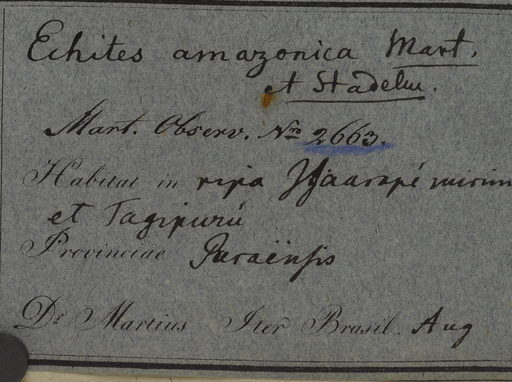 Echites amazonica Mart.
et Stadelm.
Mart. Observ. Nro 2663.
Habitat in ripa Ygaarapé mirim
et Tagipurú
Provinciae Paraënsis
Dr. Martius Iter Brasil. Aug